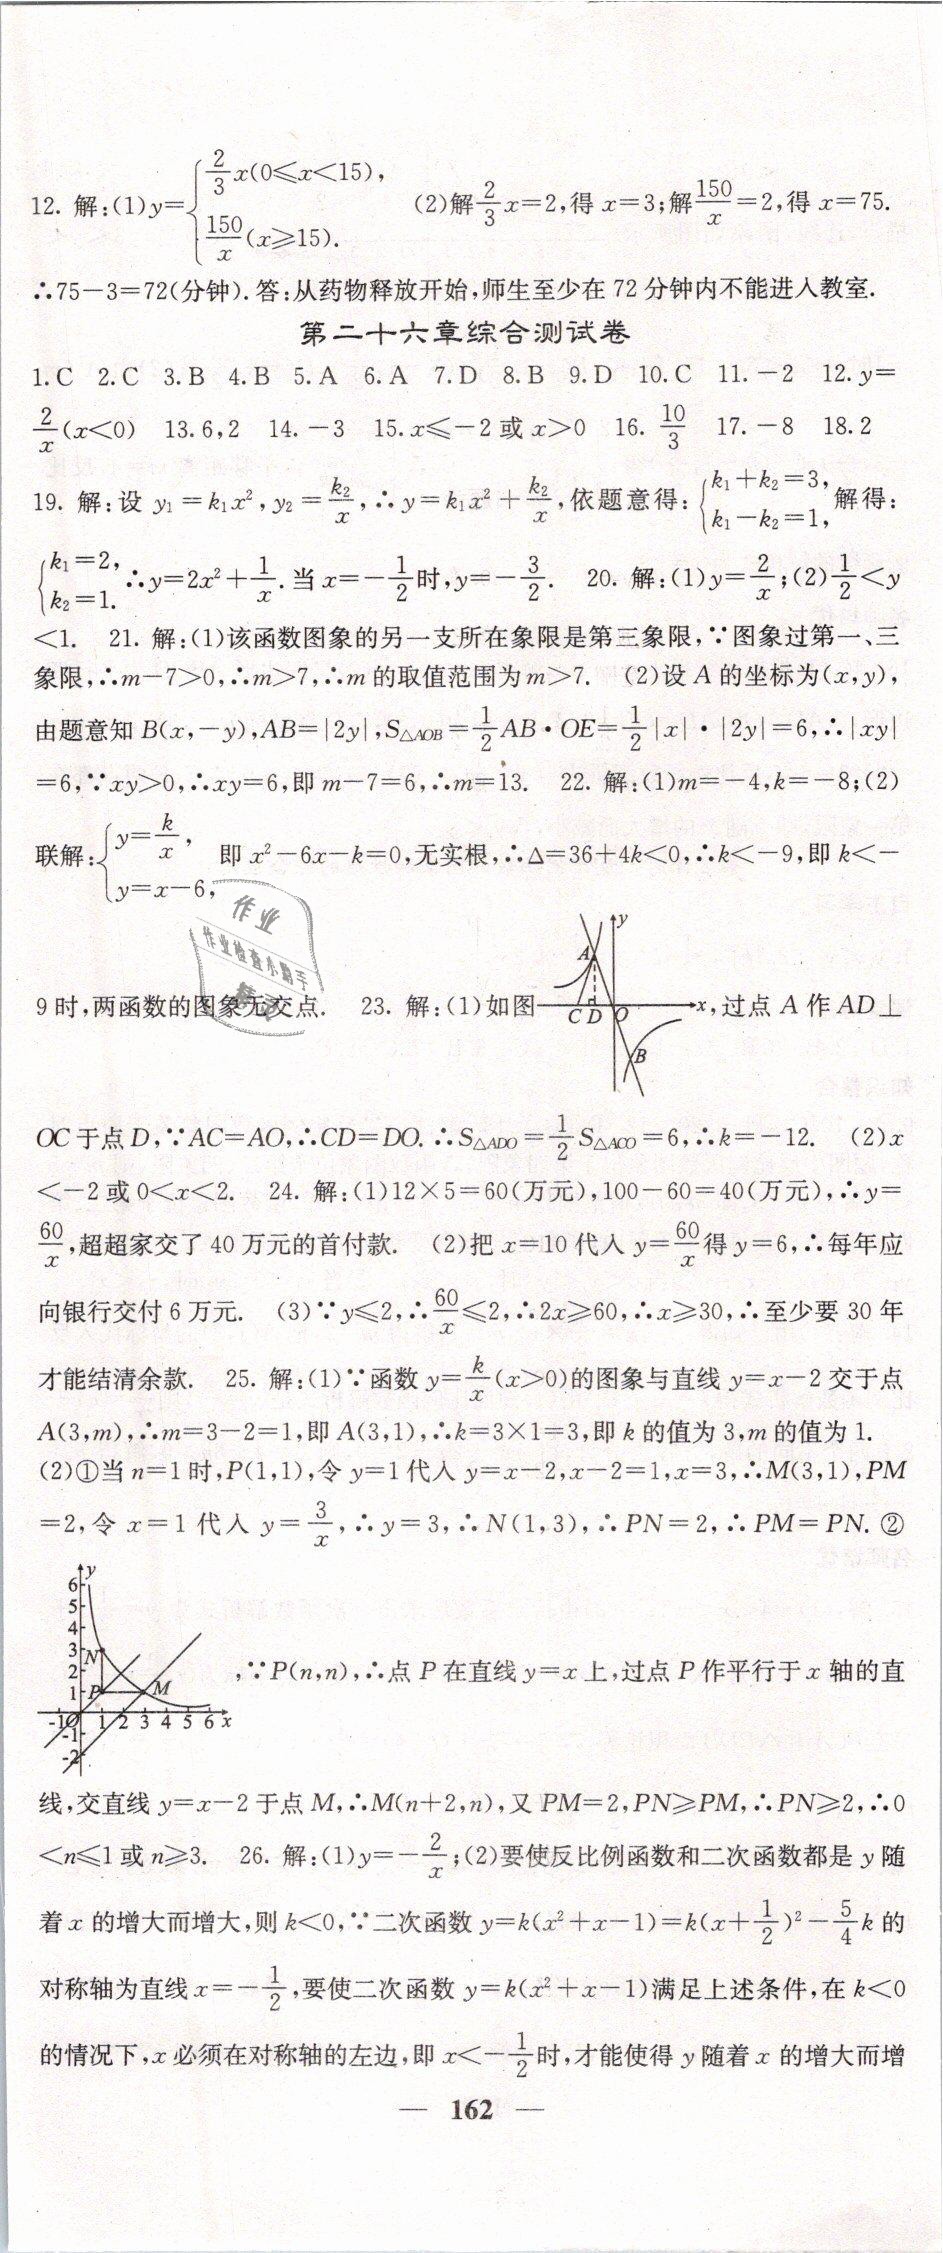 12. 解:(1)y={2/3 x(0≤x<15), 150/x (x≥15). (2)解2/3 x=2,得 x=3;解150/x=2,得 x=75.
∴75-3=72(分钟).答:从药物释放开始,师生至少在 72 分钟内不能进入教室.
第二十六章综合测试卷
1.C 2.C 3.B 4.B 5.A 6.A 7.D 8.B 9.D 10.C 11.-2 12.y=
2/x (x<0) 13.6,2 14.-3 15.x≤-2 或 x>0 16. 10/3 17.-8 18.2
19. 解:设 y₁=k₁x²,y₂=k₂/x,∴y=k₁x²+k₂/x,依题意得:{k₁+k₂=3, k₁-k₂=1, 解得:
{k₁=2, k₂=1. ∴y=2x²+1/x.当 x=-1/2时,y=-3/2. 20. 解:(1)y=2/x;(2)1/2<y
<1. 21. 解:(1)该函数图象的另一支所在象限是第三象限,∵图象过第一、三
象限,∴m-7>0,∴m>7,∴m 的取值范围为 m>7. (2)设 A 的坐标为(x,y),
由题意知 B(x,-y),AB=|2y|,S△AOB=1/2 AB·OE=1/2|x|·|2y|=6,∴|xy|
=6,∵xy>0,∴xy=6,即 m-7=6,∴m=13. 22. 解:(1)m=-4,k=-8;(2)
联解:{y=k/x, y=x-6, 即 x²-6x-k=0,无实根,∴Δ=36+4k<0,∴k<-9,即 k<-
作业
作业检查小助手
9 时,两函数的图象无交点. 23. 解:(1)如图 y A C D O x B ,过点 A 作 AD⊥
OC 于点 D,∵AC=AO,∴CD=DO.∴S△ADO=1/2 S△ACO=6,∴k=-12. (2)x
<-2 或 0<x<2. 24. 解:(1)12×5=60(万元),100-60=40(万元),∴y=
60/x,超超家交了 40 万元的首付款. (2)把 x=10 代入 y=60/x得 y=6,∴每年应
向银行交付 6 万元. (3)∵y≤2,∴60/x≤2,∴2x≥60,∴x≥30,∴至少要 30 年
才能结清余款. 25. 解:(1)∵函数 y=k/x (x>0)的图象与直线 y=x-2 交于点
A(3,m),∴m=3-2=1,即 A(3,1),∴k=3×1=3,即 k 的值为 3,m 的值为 1.
(2)①当 n=1 时,P(1,1),令 y=1 代入 y=x-2,x-2=1,x=3,∴M(3,1),PM
=2,令 x=1 代入 y=3/x,∴y=3,∴N(1,3),∴PN=2,∴PM=PN. ②
y 6 5 4 3 2 1 N P M -1 O 1 2 3 4 5 6 x -1 -2 ,∵P(n,n),∴点 P 在直线 y=x 上,过点 P 作平行于 x 轴的直
线,交直线 y=x-2 于点 M,∴M(n+2,n),又 PM=2,PN≥PM,∴PN≥2,∴0
<n≤1 或 n≥3. 26. 解:(1)y=-2/x;(2)要使反比例函数和二次函数都是 y 随
着 x 的增大而增大,则 k<0,∵二次函数 y=k(x²+x-1)=k(x+1/2)²-5/4 k 的
对称轴为直线 x=-1/2,要使二次函数 y=k(x²+x-1)满足上述条件,在 k<0
的情况下,x 必须在对称轴的左边,即 x<-1/2时,才能使得 y 随着 x 的增大而增
— 162 —